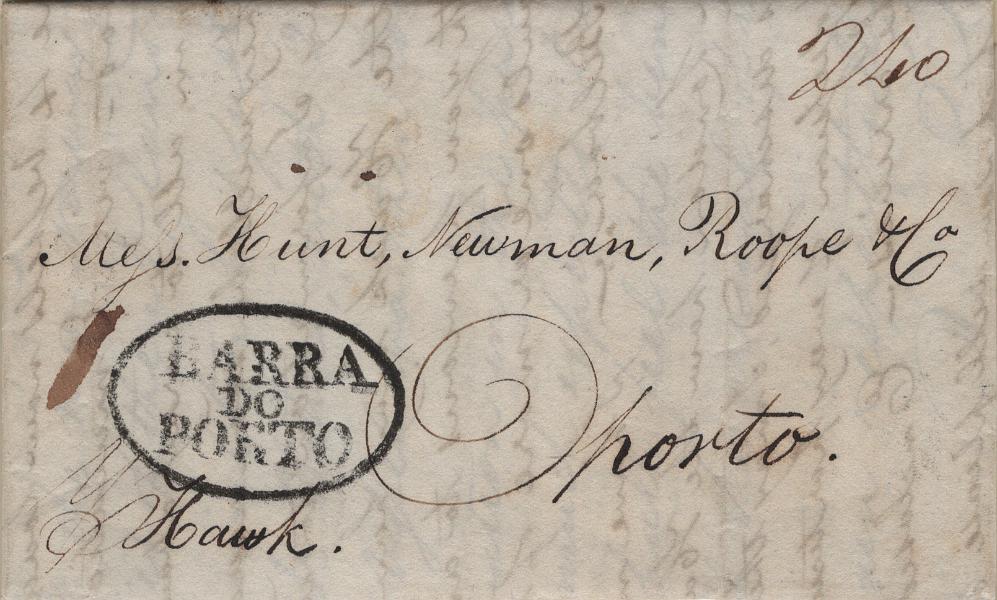 240
Mess. Hunt, Newman, Roope & Co
BARRA
DO
PORTO
Oporto.
Hawk.